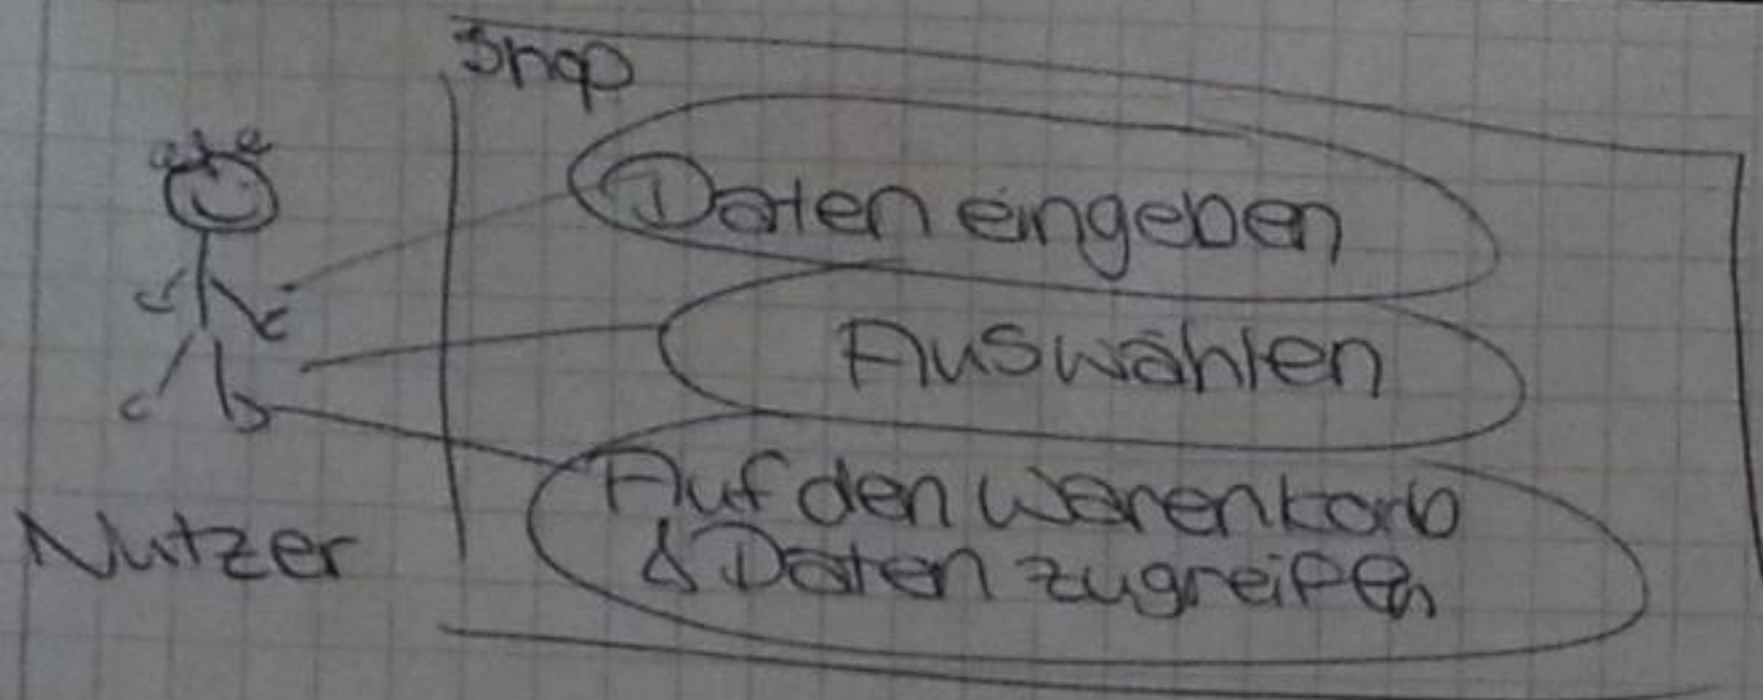 Shop
Daten eingeben
Auswählen
Auf den Warenkorb
& Daten zugreifen
Nutzer